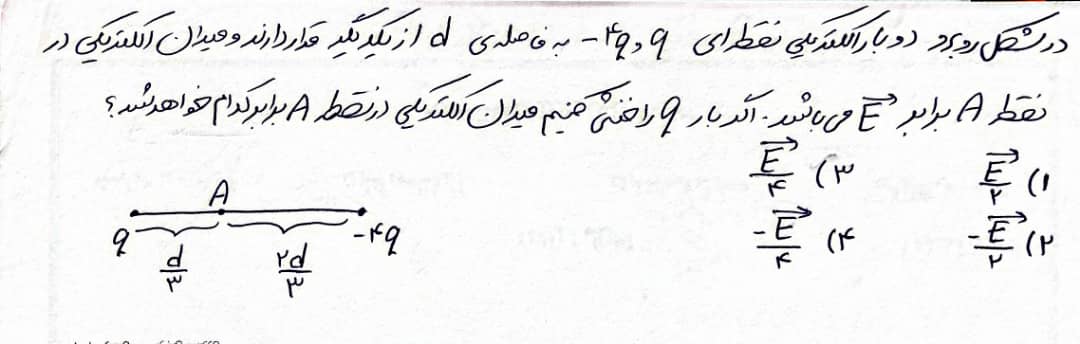 در شکل روبرو دو بار الکتریکی نقطه‌ای q و -۴q به فاصله‌ی d از یکدیگر قرار دارند و میدان الکتریکی در
نقطه A برابر E می باشد. اگر بار q را خنثی کنیم میدان الکتریکی در نقطه A برابر کدام خواهد شد؟
۱) E/۲ ۳) E/۴
۲) -E/۲ ۴) -E/۴
A
q -۴q
d/۳ ۲d/۳